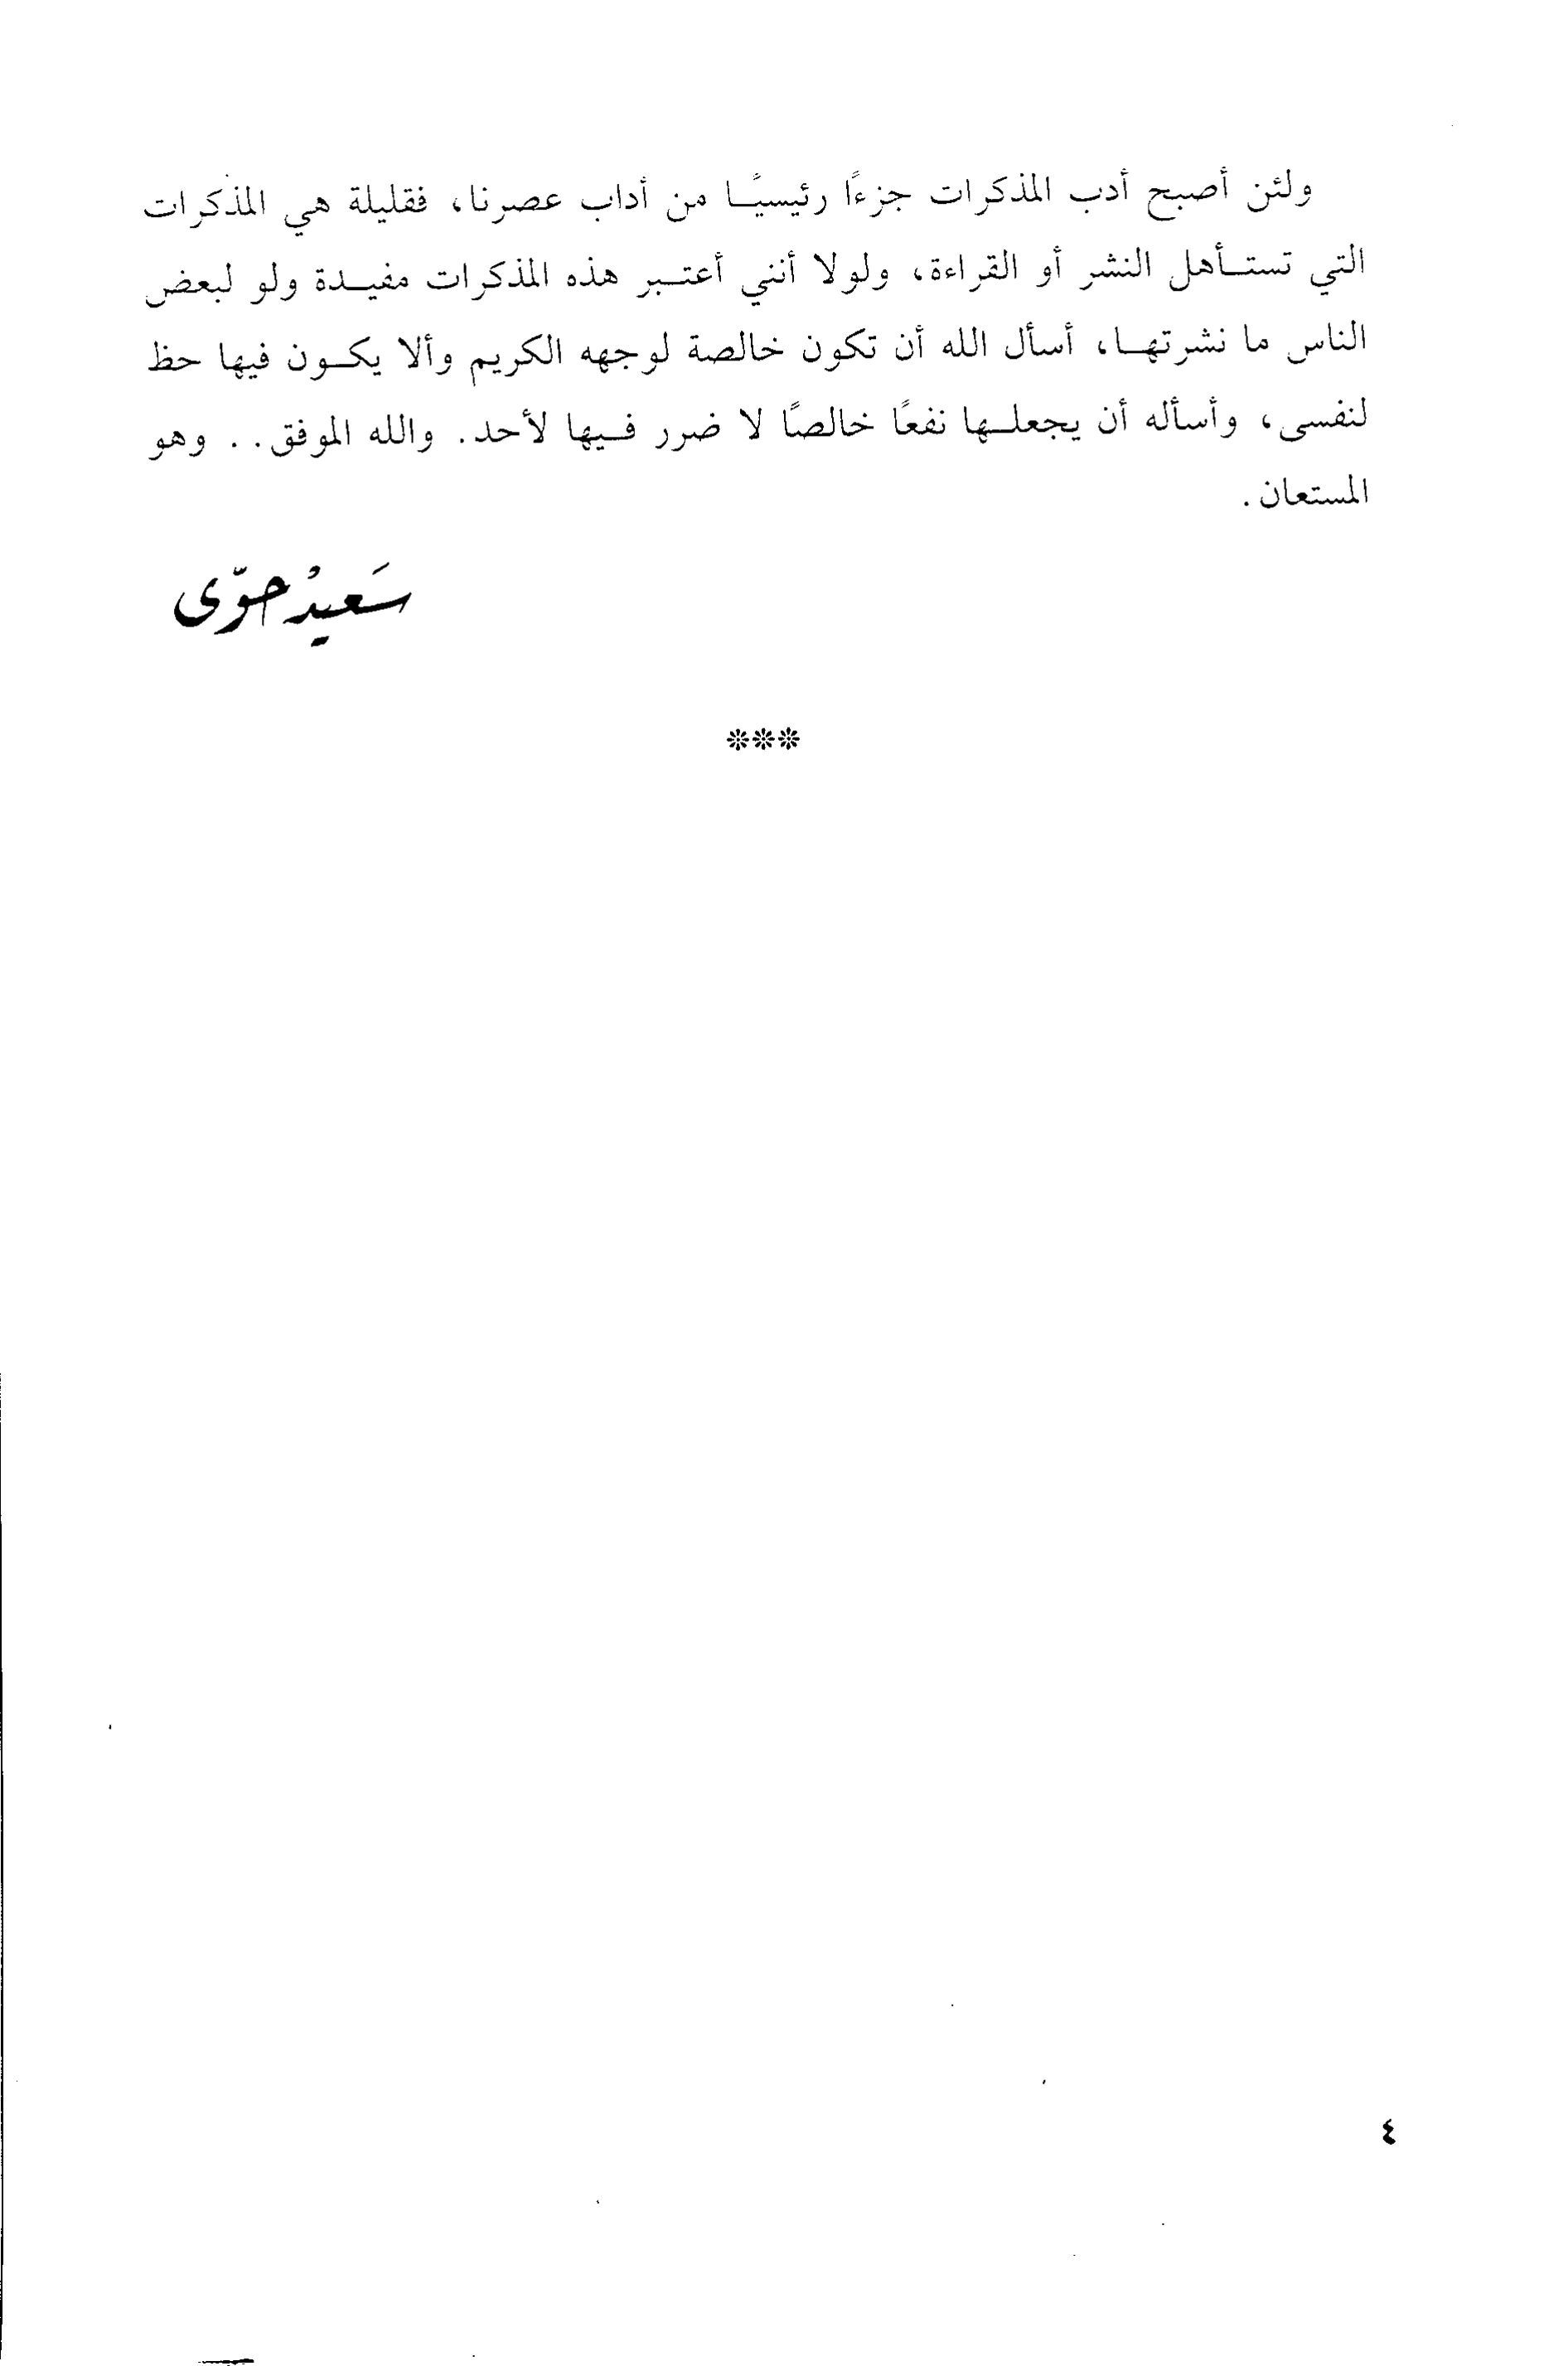 ولئن أصبح أدب المذكرات جزءًا رئيسيًا من أداب عصرنا، فقليلة هي المذكرات
التي تستأهل النشر أو القراءة، ولولا أنني أعتبر هذه المذكرات مفيدة ولو لبعض
الناس ما نشرتها، أسأل الله أن تكون خالصة لوجهه الكريم وألا يكون فيها حظ
لنفسى، وأسأله أن يجعلها نفعًا خالصًا لا ضرر فيها لأحد. والله الموفق.. وهو
المستعان.
سَعيدْ حوّى
***
٤